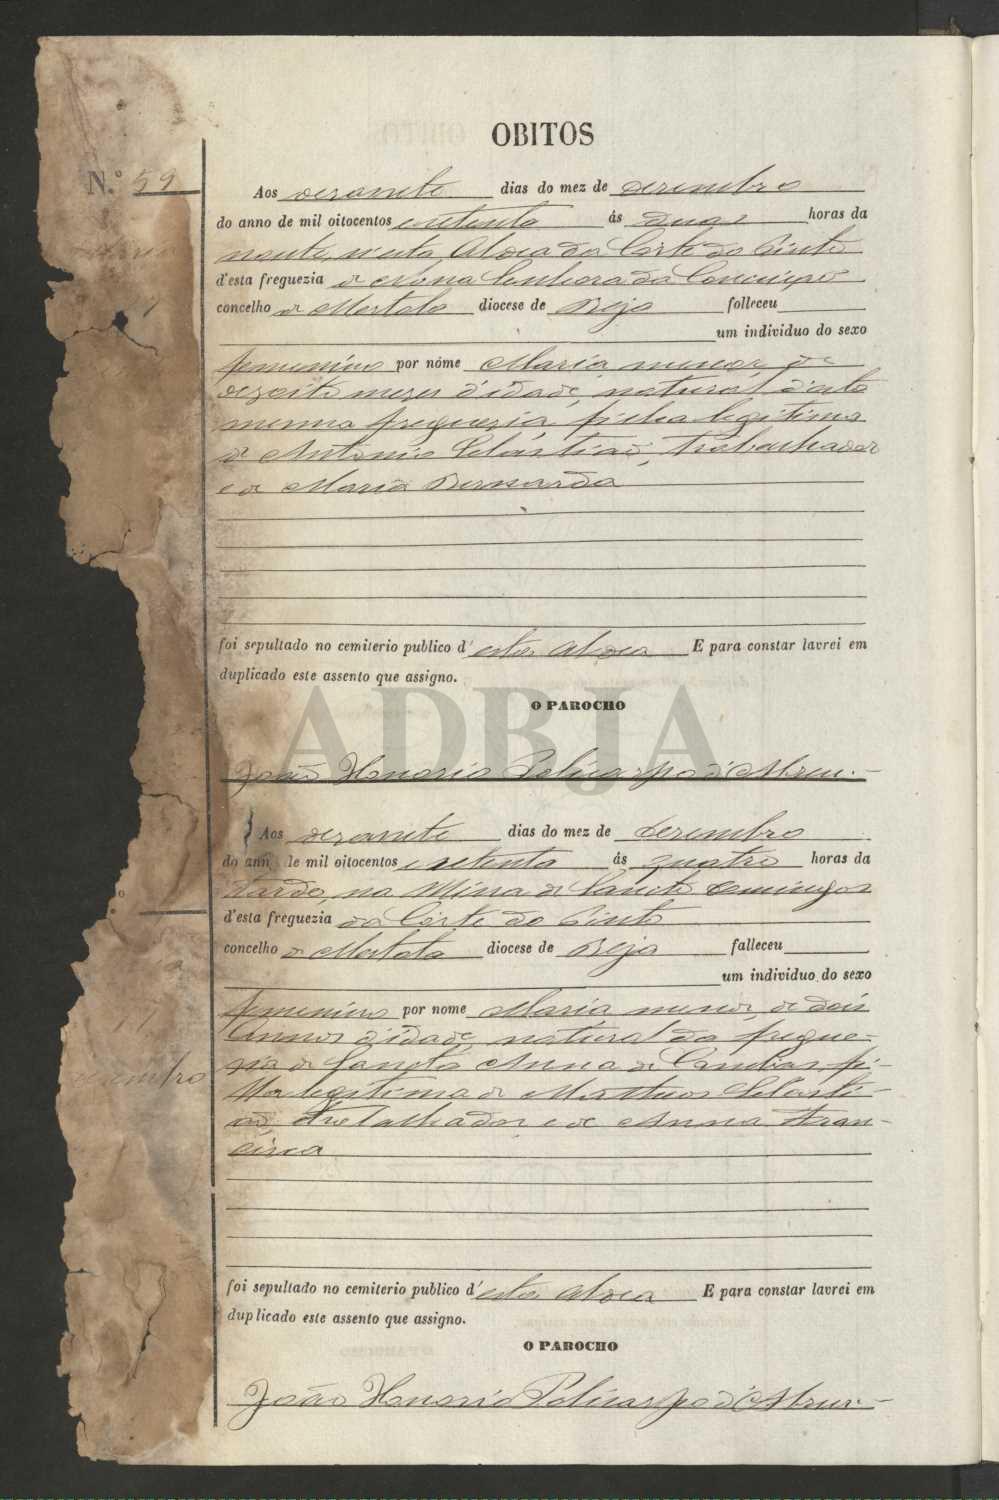 OBITOS
N.º 59
Aos desasete dias do mez de desembro
do anno de mil oitocentos e setenta ás duas horas da
noute, n'esta Aldea da Corte do Pinto
d'esta freguezia de Nossa Senhora da Conceição
concelho de Mertola diocese de Beja folleceu
um individuo do sexo
femenino por nóme Maria menor, de
desoito mezes d'idade, natural d'esta
mesma freguezia, filha legitima
de Antonio Sebastiaõ, trabalhador
e de Maria Bernarda
foi sepultado no cemiterio publico d'esta Aldea E para constar lavrei em
duplicado este assento que assigno.
O PAROCHO
ADBJA
João Honorio Policarpo d'Abreu.
Aos desasete dias do mez de desembro
do anno de mil oitocentos e setenta ás quatro horas da
tarde, na Mina de Sancto Domingos
d'esta freguezia da Côrte do Pinto
concelho de Mertola diocese de Beja falleceu
um individuo do sexo
femenino por nome Maria menor, de dois
annos d'idade, natural da fregue-
sia de Sancta Anna de Cambas, fi-
lha legitima de Matheos Sebasti-
aõ, Trabalhador e de Anna Fran-
cisca
foi sepultado no cemiterio publico d'esta Aldea E para constar lavrei em
duplicado este assento que assigno.
O PAROCHO
João Honorio Policarpo d'Abreu.